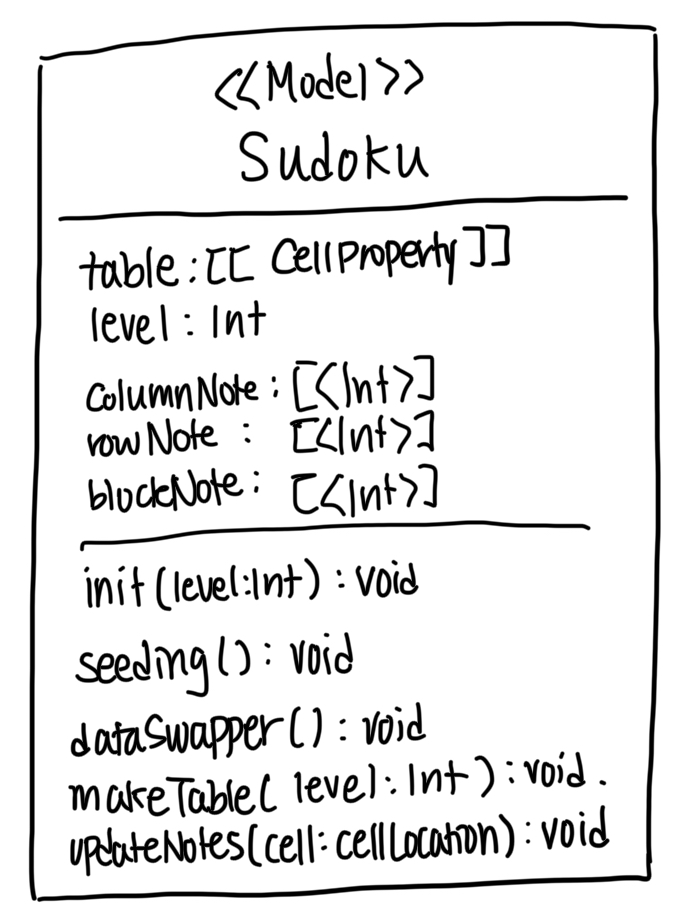 <<Model>>
Sudoku
table:[[ CellProperty]]
level: Int
columnNote: [<Int>]
rowNote : [<Int>]
blockNote: [<Int>]
init(level:Int): void
seeding(): void
dataSwapper(): void
makeTable( level: Int ): void.
updateNotes(cell: cellLocation): void